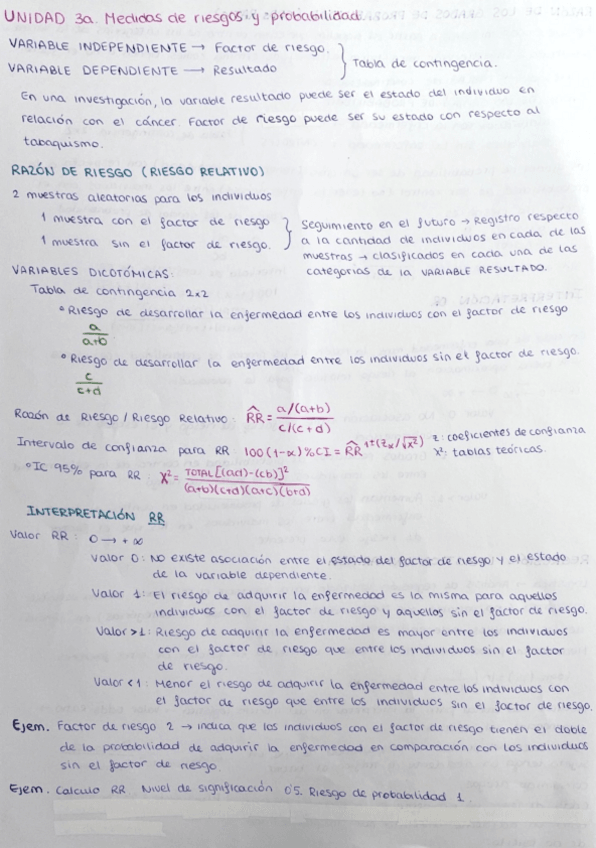 UNIDAD 3a. Medidas de riesgos y probabilidad.
VARIABLE INDEPENDIENTE → Factor de riesgo.
VARIABLE DEPENDIENTE → Resultado
Tabla de contingencia.
En una investigación, la variable resultado puede ser el estado del individuo en
relación con el cáncer. Factor de riesgo puede ser su estado con respecto al
tabaquismo.
RAZÓN DE RIESGO (RIESGO RELATIVO)
2 muestras aleatorias para los individuos
1 muestra con el factor de riesgo
1 muestra sin el factor de riesgo.
Seguimiento en el futuro → Registro respecto
a la cantidad de individuos en cada de las
muestras → clasificados en cada una de las
categorías de la VARIABLE RESULTADO.
VARIABLES DICOTÓMICAS:
Tabla de contingencia 2x2
° Riesgo de desarrollar la enfermedad entre los individuos con el factor de riesgo
a/a+b
° Riesgo de desarrollar la enfermedad entre los individuos sin el factor de riesgo.
c/c+d
Razón de Riesgo / Riesgo Relativo: R̂R = a/(a+b) / c/(c+d)
Intervalo de confianza para RR 100(1-α)%CI = R̂R^1±(Zα/√x²) z: coeficientes de confianza
x²: tablas teóricas.
° IC 95% para RR X² = TOTAL[(ad)-(cb)]² / (a+b)(c+d)(a+c)(b+d)
INTERPRETACIÓN RR
Valor RR: 0 → +∞
Valor 0: NO existe asociación entre el estado del factor de riesgo y el estado
de la variable dependiente.
Valor 1: El riesgo de adquirir la enfermedad es la misma para aquellos
individuos con el factor de riesgo y aquellos sin el factor de riesgo.
Valor >1: Riesgo de adquirir la enfermedad es mayor entre los individuos
con el factor de riesgo que entre los individuos sin el factor
de riesgo.
Valor <1: Menor el riesgo de adquirir la enfermedad entre los individuos con
el factor de riesgo que entre los individuos sin el factor de riesgo.
Ejem. Factor de riesgo 2 → indica que los individuos con el factor de riesgo tienen el doble
de la probabilidad de adquirir la enfermedad en comparación con los individuos
sin el factor de riesgo.
Ejem. Calculo RR Nivel de significación 0'5. Riesgo de probabilidad 1.